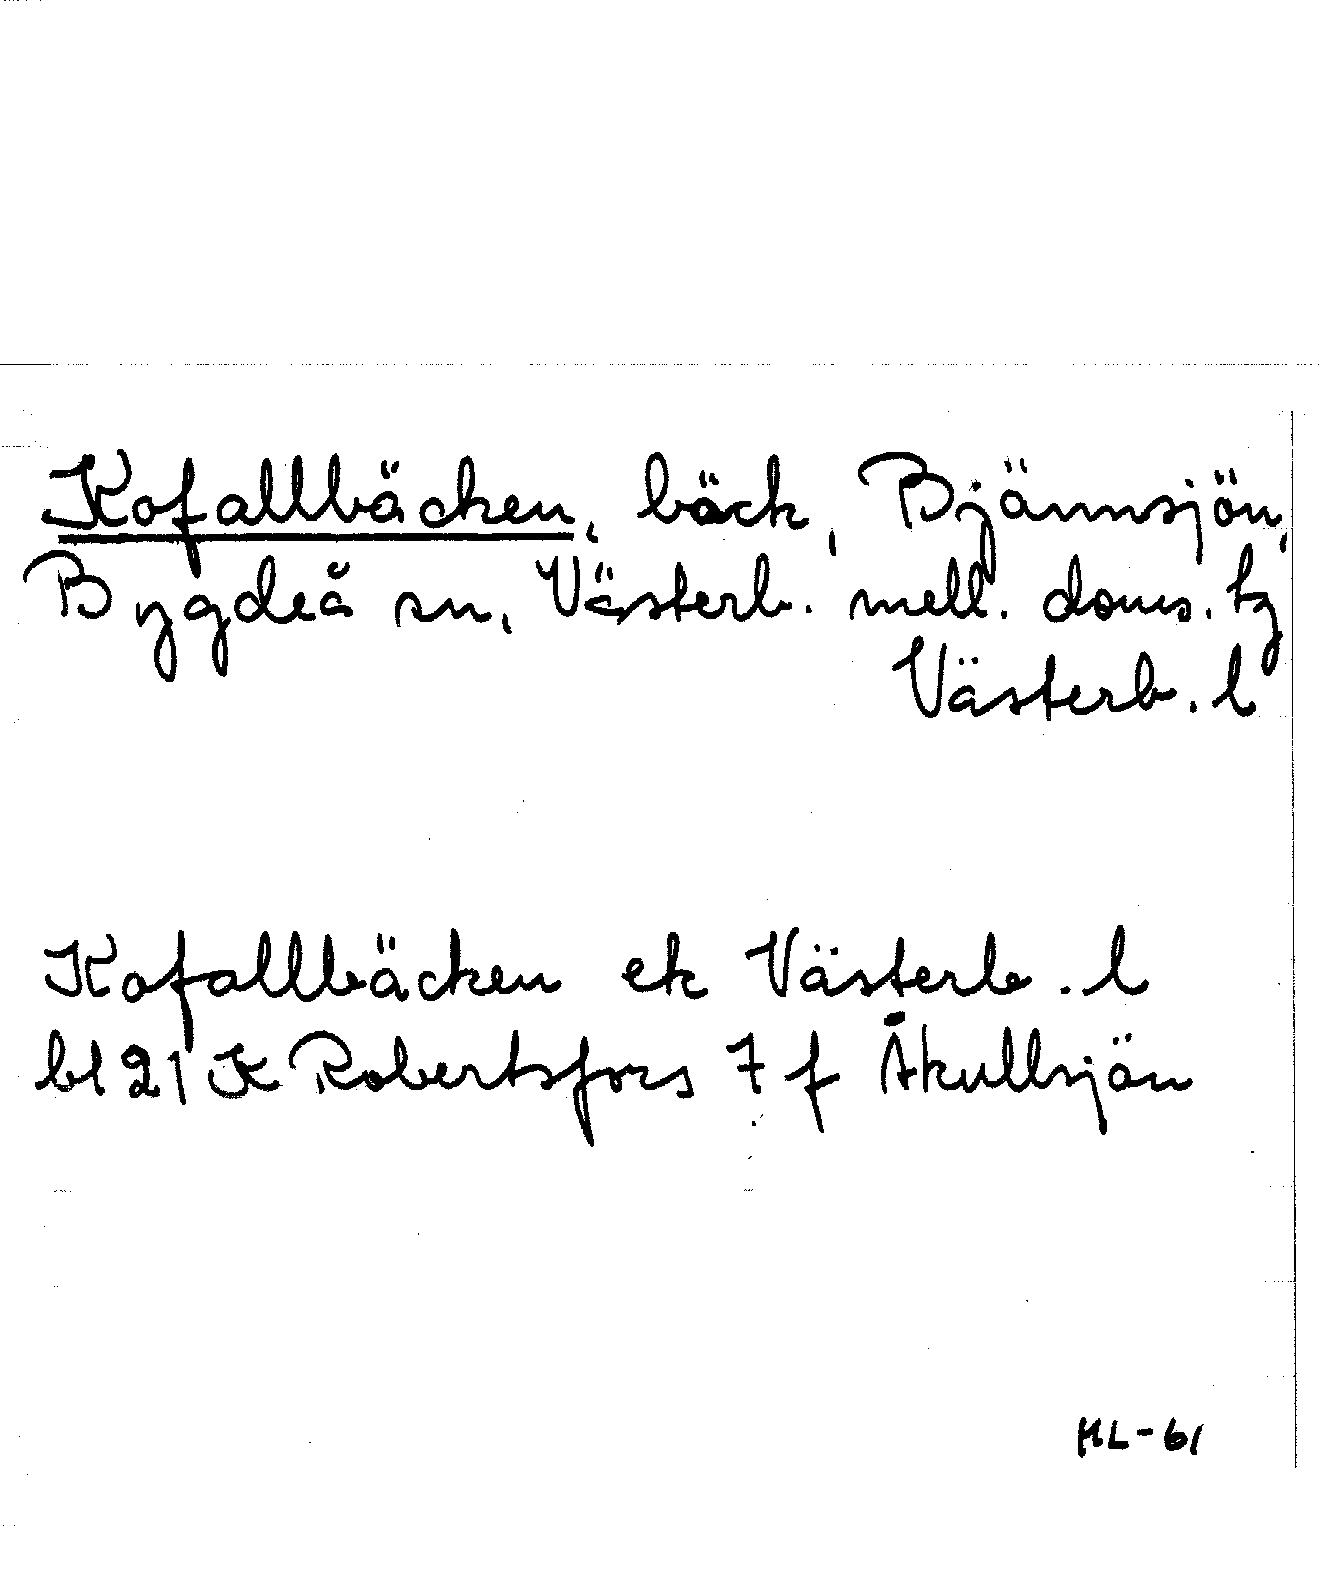 Kofallbäcken, bäck, Bjännsjön,
Bygdeå sn, Västerb. mell. doms. tg
Västerb. l
Kofallbäcken ek Västerb. l
bl 21 K Robertsfors 7 f Åkullsjön
HL-61